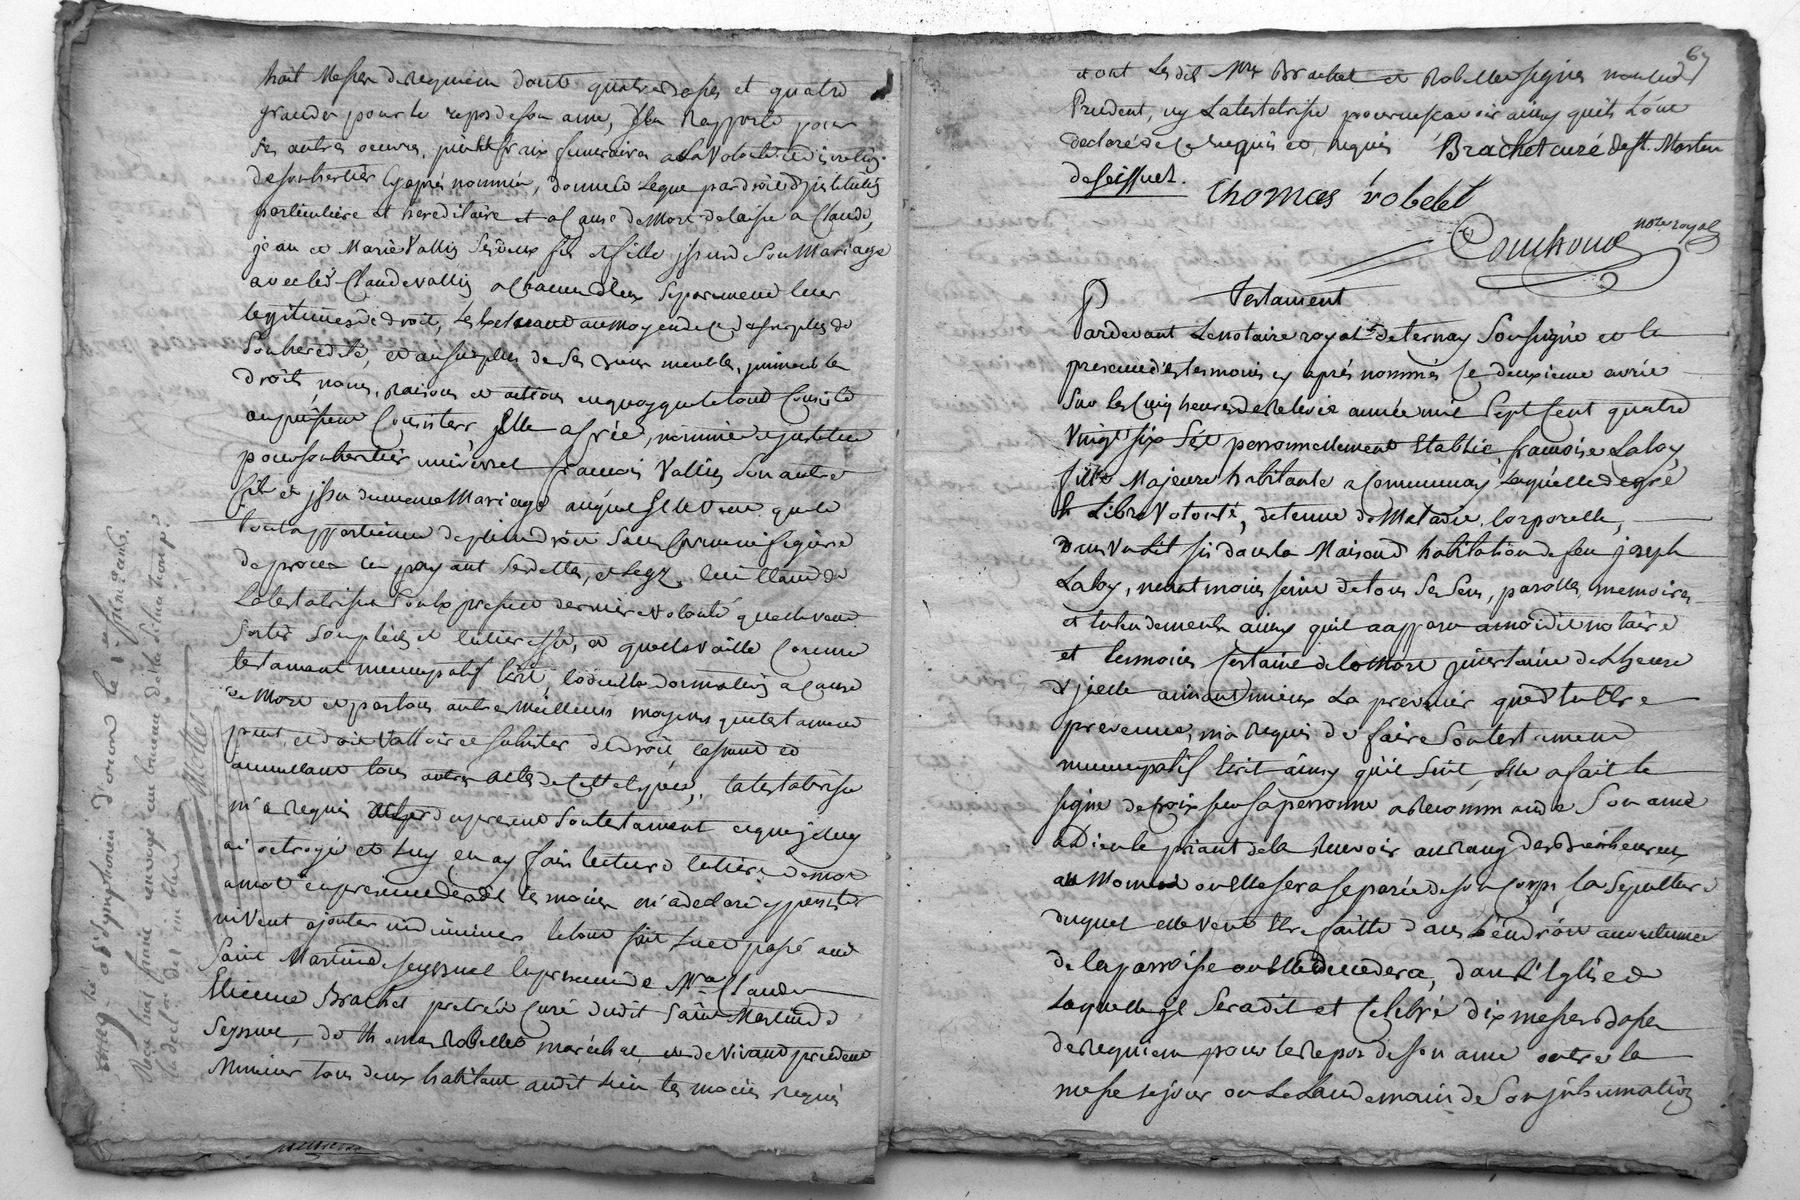 huit Messes de requiem dont quatre basses et quatre
grandes pour le repos de son ame, Elle Rapporte pour
ses autres oeuvres, pies et fraix funeraires a la volonté et devotion
de son heritier cy après nommée, donne et Legue par droit d'institution
particulière et hereditaire et a Cause de Mort delaisse a Claude,
jean et Marie Vallin Ses deux fils et fille issus de Son Mariage
avec led. Claude vallin a Chacun d'eux Separement leur
legitimes de droit, les
Son heredité, et au surplus de Ses biens meubles, immeubles
droits, noms, raisons et actions en quoy que le tout Consiste
au présent Consister, Elle a Créé, nommé et institué
pour son heritier universel francois Vallin Son autre
fils et issu du meme Mariage auquel Elle Veut que le
tout appartienne de plein droit Sans
de procès en payant Ses dettes, et Legs,
La testatrice Son Expresse dernière volonté quelle veut
Sortir Son plein et entier effet, et quelle vaille Comme
testament nuncupatif écrit, codicille donnation a Cause
de Mort et par tous autres Meilleurs moyens que testament
peut et doit Valloir et Subsister de droit, cassant et
annullant tous autres actes de Cette espèce, la testatrice
m'a requis acte du present Son testament et que je luy
ai octroyé et luy en ay fait lecture entiere de mot
a mot en presence desd. témoins m'a declaré y persister
ni Veut ajouter ni diminuer le tout fait Lu et passé aud.
Saint Martin de Seyssuel En presence de Mre Claude
Etienne Brachet pretre Curé dudit Saint Martin de
Seyssuel, de thomas Robellet maréchal, et de Vivant prudent
Meunier tous deux habitant audit Lieu témoins requis
Controllé a St Symphorien d'ozon le
Reçu trois francs
la declon des imbles
Mottes
67
et ont Lesdits Mre Brachet et Robellet signés non led.
Prudent, ny La testatrice pour ne scavoir ainsy quils L'ont
declaré de Ce enquis et requis Brachet curé de st. Martin
de seissuel. thomas robelet
Couchoud nore royal
testament
Pardevant Le notaire royal de ternay Soussigné et la
presence des temoins cy après nommés Ce deuxieme avril
Sur les Cinq heures de Relevée année mil Sept Cent quatre
Vingt six fût personnellement Etablie, francoise Laboy
fille Majeure habitante a Communay Laquelle de gré
et Libre Volonté, detenue de Maladie Corporelle,
Dans un Lit sis dans la Maison d'habitation de feu joseph
Laboy, neantmoins saine de tous Ses Sens, parolle, memoires
et Entendement ainsy quil a apparu a moidit notaire
et temoins Certaine de la Mort incertaine de L'heure
d'icelle aimant mieux La prevenir que d'Etre
prevenue, m'a Requis de faire Son testament
nuncupatif écrit ainsy qu'il Suit, Elle a fait le
signe de croix sur sa personne a recommandé Son ame
a Dieu le priant de la Recevoir au rang des bienheureux
au Moment ou Elle sera separée de son Corps, la Sepulture
duquel elle Veut Etre faitte dans L'endroit accoutumé
de la paroisse ou Elle decedera, dans L'Eglise de
Laquelle il Sera dit et Celebré dix messes basses
de requiem pour le Repos de son ame outre la
messe le jour ou Le Landemain de Son inhumation